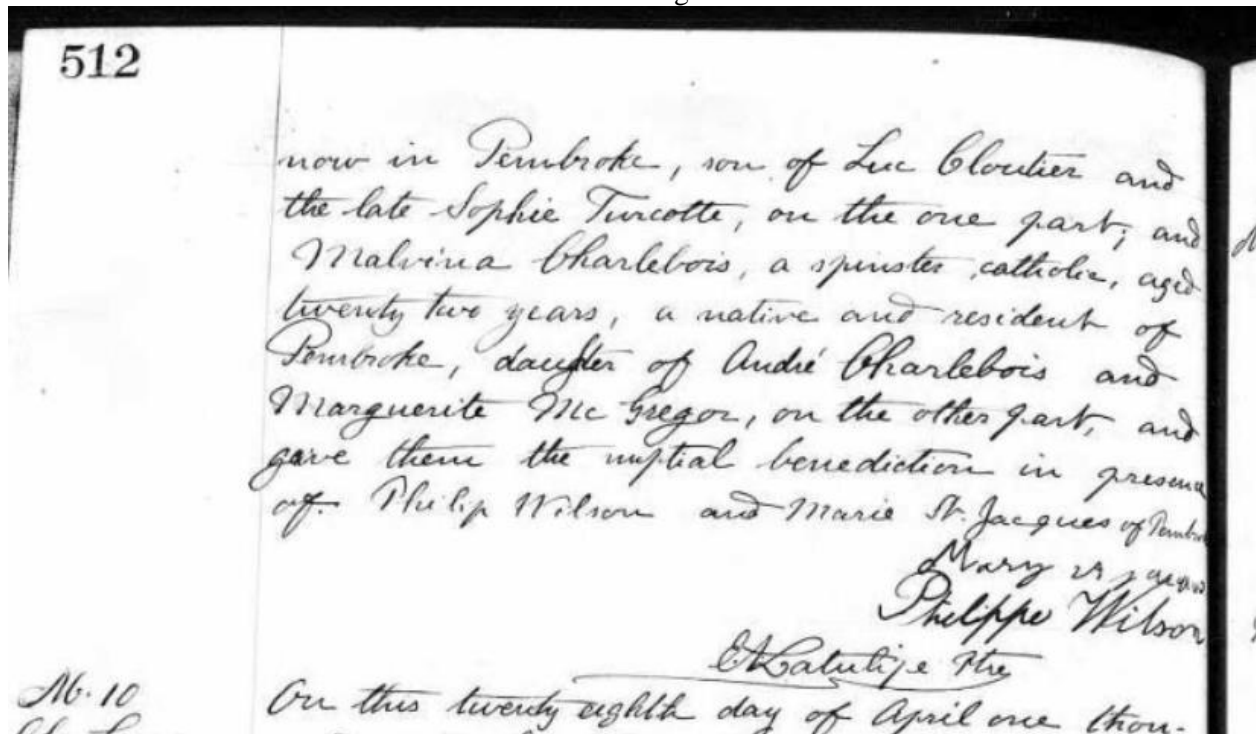 512
now in Pembroke, son of Luc Cloutier and
the late Sophie Turcotte, on the one part; and
Malvina Charlebois, a spinster, catholic, aged
twenty two years, a native and resident of
Pembroke, daughter of André Charlebois and
Marguerite Mc Gregor, on the other part, and
gave them the nuptial benediction in presence
of. Philip Wilson and Marie St. Jacques of Pembroke
Mary
Philippe Wilson
Latulipe Ptre
M. 10
On this twenty eighth day of April one thou-